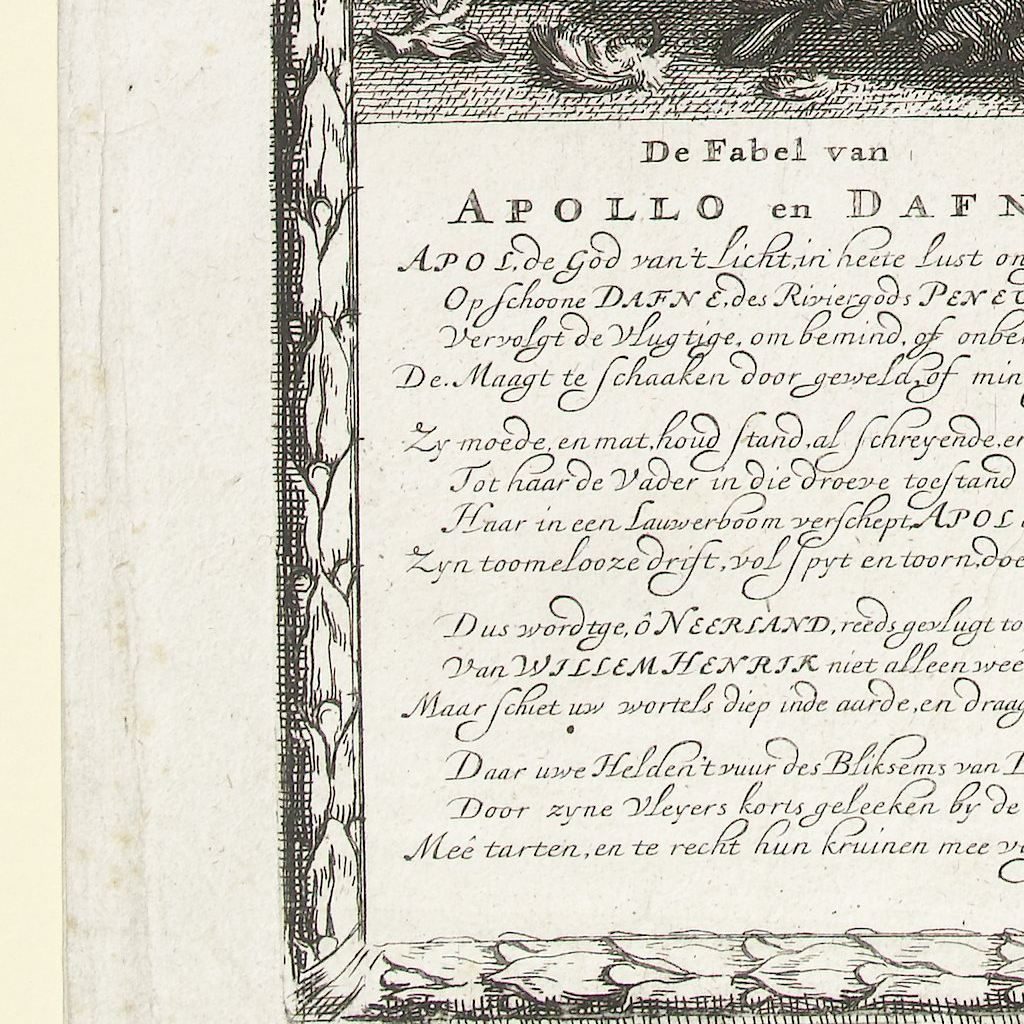 De Fabel van
APOLLO en DAFN
APOL, de God van't licht, in heete lust on
Op schoone DAFNE, des Riviergods PENEU
Vervolgt de Vlugtige, om bemind, of onbe
De Maagt te schaaken door geweld, of min
Zy moede, en mat, houd stand, al schreyende, en
Tot haar de Vader in die droeve toestand
Haar in een Lauwerboom verschept, APOL
Zyn toomelooze drift, vol spyt en toorn, doe
Dus wordtge, ô NEERLAND, reeds gevlugt to
Van WILLEM HENRIK niet alleen wee
Maar schiet uw wortels diep inde aarde, en draag
Daar uwe Helden 't vuur des Bliksems van
Door zyne Vleyers korts geleeken by de
Meê tarten, en te recht hun kruinen mee ve